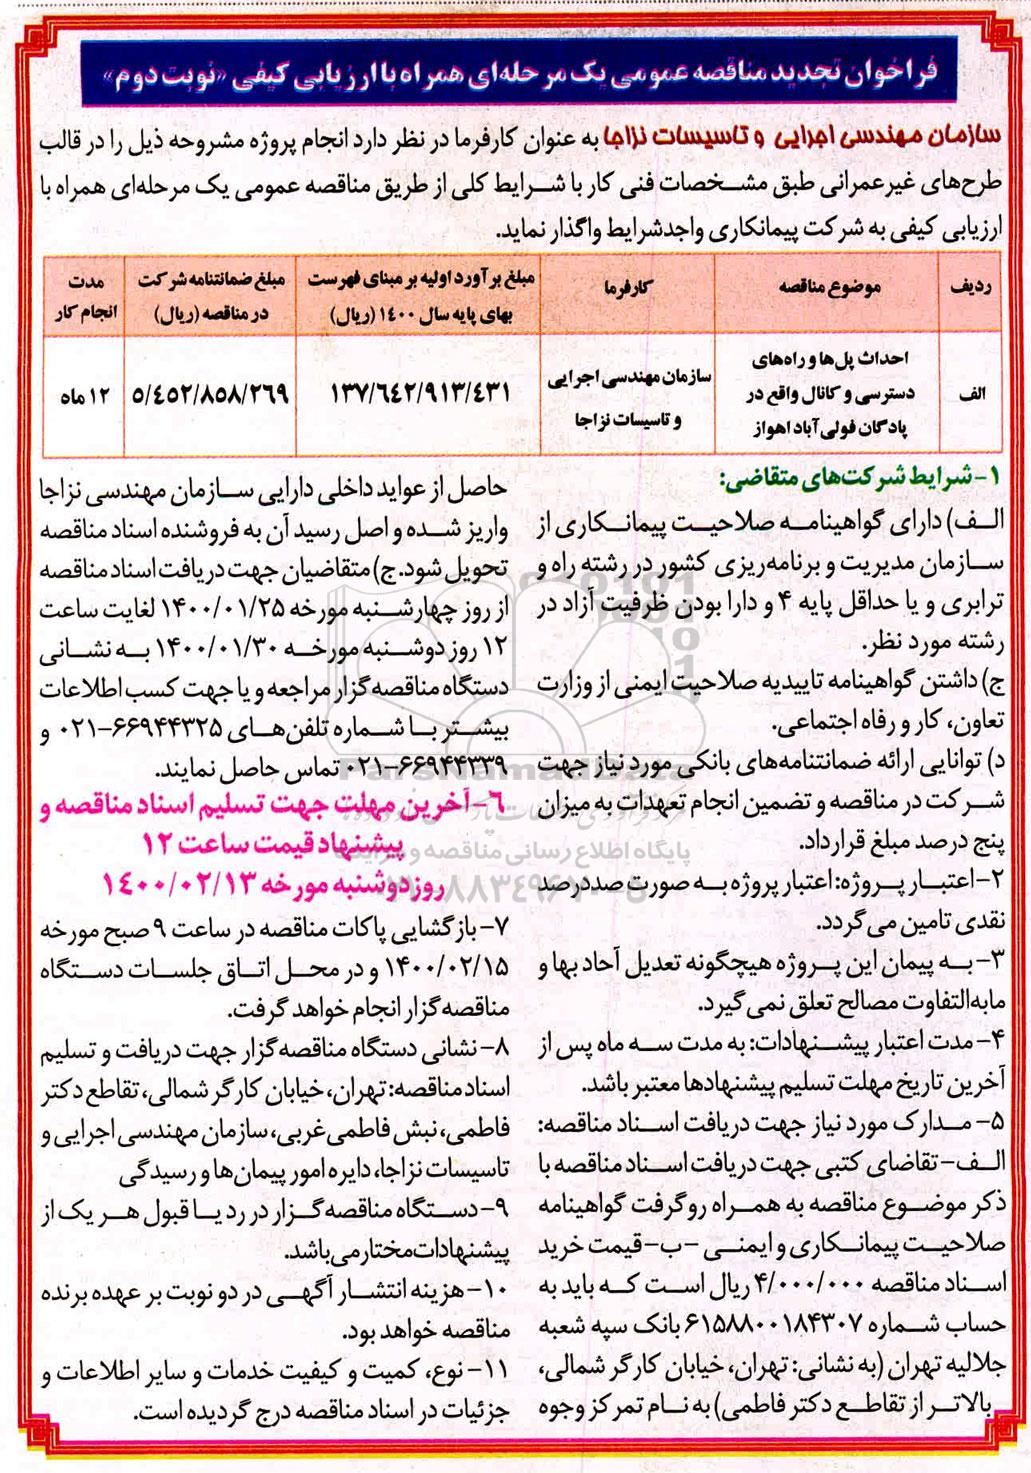 فراخوان تجدید مناقصه عمومی یک مرحله‌ای همراه با ارزیابی کیفی «نوبت دوم»
سازمان مهندسی اجرایی و تاسیسات نزاجا به عنوان کارفرما در نظر دارد انجام پروژه مشروحه ذیل را در قالب
طرح‌های غیرعمرانی طبق مشخصات فنی کار با شرایط کلی از طریق مناقصه عمومی یک مرحله‌ای همراه با
ارزیابی کیفی به شرکت پیمانکاری واجدشرایط واگذار نماید.
ردیف | موضوع مناقصه | کارفرما | مبلغ برآورد اولیه بر مبنای فهرست بهای پایه سال ۱۴۰۰ (ریال) | مبلغ ضمانتنامه شرکت در مناقصه (ریال) | مدت انجام کار
الف | احداث پل‌ها و راه‌های دسترسی و کانال واقع در پادگان فولی‌آباد اهواز | سازمان مهندسی اجرایی و تاسیسات نزاجا | ۱۳۷/۶۴۲/۹۱۳/۴۳۱ | ۵/۴۵۲/۸۵۸/۲۶۹ | ۱۲ ماه
۱- شرایط شرکت‌های متقاضی:
الف) دارای گواهینامه صلاحیت پیمانکاری از
سازمان مدیریت و برنامه‌ریزی کشور در رشته راه و
ترابری و یا حداقل پایه ۴ و دارا بودن ظرفیت آزاد در
رشته مورد نظر.
ج) داشتن گواهینامه تاییدیه صلاحیت ایمنی از وزارت
تعاون، کار و رفاه اجتماعی.
د) توانایی ارائه ضمانتنامه‌های بانکی مورد نیاز جهت
شرکت در مناقصه و تضمین انجام تعهدات به میزان
پنج درصد مبلغ قرارداد.
۲- اعتبار پروژه: اعتبار پروژه به صورت صددرصد
نقدی تامین می‌گردد.
۳- به پیمان این پروژه هیچگونه تعدیل آحاد بها و
مابه‌التفاوت مصالح تعلق نمی‌گیرد.
۴- مدت اعتبار پیشنهادات: به مدت سه ماه پس از
آخرین تاریخ مهلت تسلیم پیشنهادها معتبر باشد.
۵- مدارک مورد نیاز جهت دریافت اسناد مناقصه:
الف- تقاضای کتبی جهت دریافت اسناد مناقصه با
ذکر موضوع مناقصه به همراه روگرفت گواهینامه
صلاحیت پیمانکاری و ایمنی -ب- قیمت خرید
اسناد مناقصه ۴/۰۰۰/۰۰۰ ریال است که باید به
حساب شماره ۶۱۵۸۸۰۰۱۸۴۳۰۷ بانک سپه شعبه
جلالیه تهران (به نشانی: تهران، خیابان کارگر شمالی،
بالاتر از تقاطع دکتر فاطمی) به نام تمرکز وجوه
حاصل از عواید داخلی دارایی سازمان مهندسی نزاجا
واریز شده و اصل رسید آن به فروشنده اسناد مناقصه
تحویل شود. ج) متقاضیان جهت دریافت اسناد مناقصه
از روز چهارشنبه مورخه ۱۴۰۰/۰۱/۲۵ لغایت ساعت
۱۲ روز دوشنبه مورخه ۱۴۰۰/۰۱/۳۰ به نشانی
دستگاه مناقصه‌گزار مراجعه و یا جهت کسب اطلاعات
بیشتر با شماره تلفن‌های ۶۶۹۴۴۳۲۵-۰۲۱ و
۶۶۹۴۴۳۳۹-۰۲۱ تماس حاصل نمایند.
۶- آخرین مهلت جهت تسلیم اسناد مناقصه و
پیشنهاد قیمت ساعت ۱۲
روز دوشنبه مورخه ۱۴۰۰/۰۲/۱۳
۷- بازگشایی پاکات مناقصه در ساعت ۹ صبح مورخه
۱۴۰۰/۰۲/۱۵ و در محل اتاق جلسات دستگاه
مناقصه‌گزار انجام خواهد گرفت.
۸- نشانی دستگاه مناقصه‌گزار جهت دریافت و تسلیم
اسناد مناقصه: تهران، خیابان کارگر شمالی، تقاطع دکتر
فاطمی، نبش فاطمی غربی، سازمان مهندسی اجرایی و
تاسیسات نزاجا، دایره امور پیمان‌ها و رسیدگی
۹- دستگاه مناقصه‌گزار در رد یا قبول هر یک از
پیشنهادات مختار می‌باشد.
۱۰- هزینه انتشار آگهی در دو نوبت بر عهده برنده
مناقصه خواهد بود.
۱۱- نوع، کمیت و کیفیت خدمات و سایر اطلاعات و
جزئیات در اسناد مناقصه درج گردیده است.
پایگاه اطلاع رسانی مناقصه و مزایده